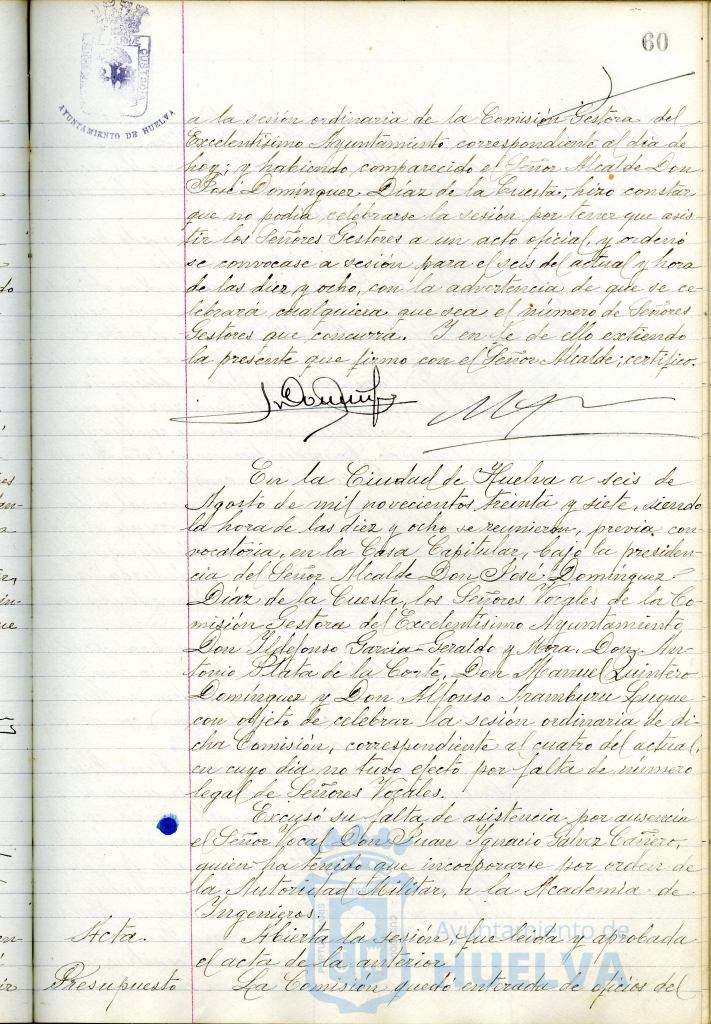 60
CUSTODIA
AYUNTAMIENTO DE HUELVA
a la sesión ordinaria de la Comisión Gestora del
Excelentísimo Ayuntamiento correspondiente al dia de
hoy; y habiendo comparecido el Señor Alcalde Don
José Domínguez Díaz de la Cuesta, hizo constar
que no podia celebrarse la sesión por tener que asis-
tir los Señores Gestores a un acto oficial, y ordenó
se convocase a sesión para el seis del actual y hora
de las diez y ocho, con la advertencia de que se ce-
lebrará cualquiera que sea el número de Señores
Gestores que concurra. Y en fe de ello extiendo
la presente que firmo con el Señor Alcalde; certifico.
En la Ciudad de Huelva a seis de
Agosto de mil novecientos treinta y siete, siendo
la hora de las diez y ocho se reunieron, previa con-
vocatoria, en la Casa Capitular, bajo la presiden-
cia del Señor Alcalde Don José Domínguez
Díaz de la Cuesta, los Señores Vocales de la Co-
misión Gestora del Excelentísimo Ayuntamiento,
Don Ildefonso Garcia-Geraldo y Mora, Don An-
tonio Plata de la Corte, Don Manuel Quintero
Domínguez y Don Alfonso Aramburu Luque
con objeto de celebrar la sesión ordinaria de di-
cha Comisión, correspondiente al cuatro del actual,
en cuyo dia no tuvo efecto por falta de número
legal de Señores Vocales.
Excusó su falta de asistencia por ausencia
el Señor Vocal Don Juan Ygnacio Galvez Cañero,
quien ha tenido que incorporarse por orden de
la Autoridad Militar, a la Academia de
Ingenieros.
Acta. Abierta la sesión, fue leida y aprobada
el acta de la anterior.
Presupuesto La Comisión quedó enterada de oficios del
Ayuntamiento de
HUELVA